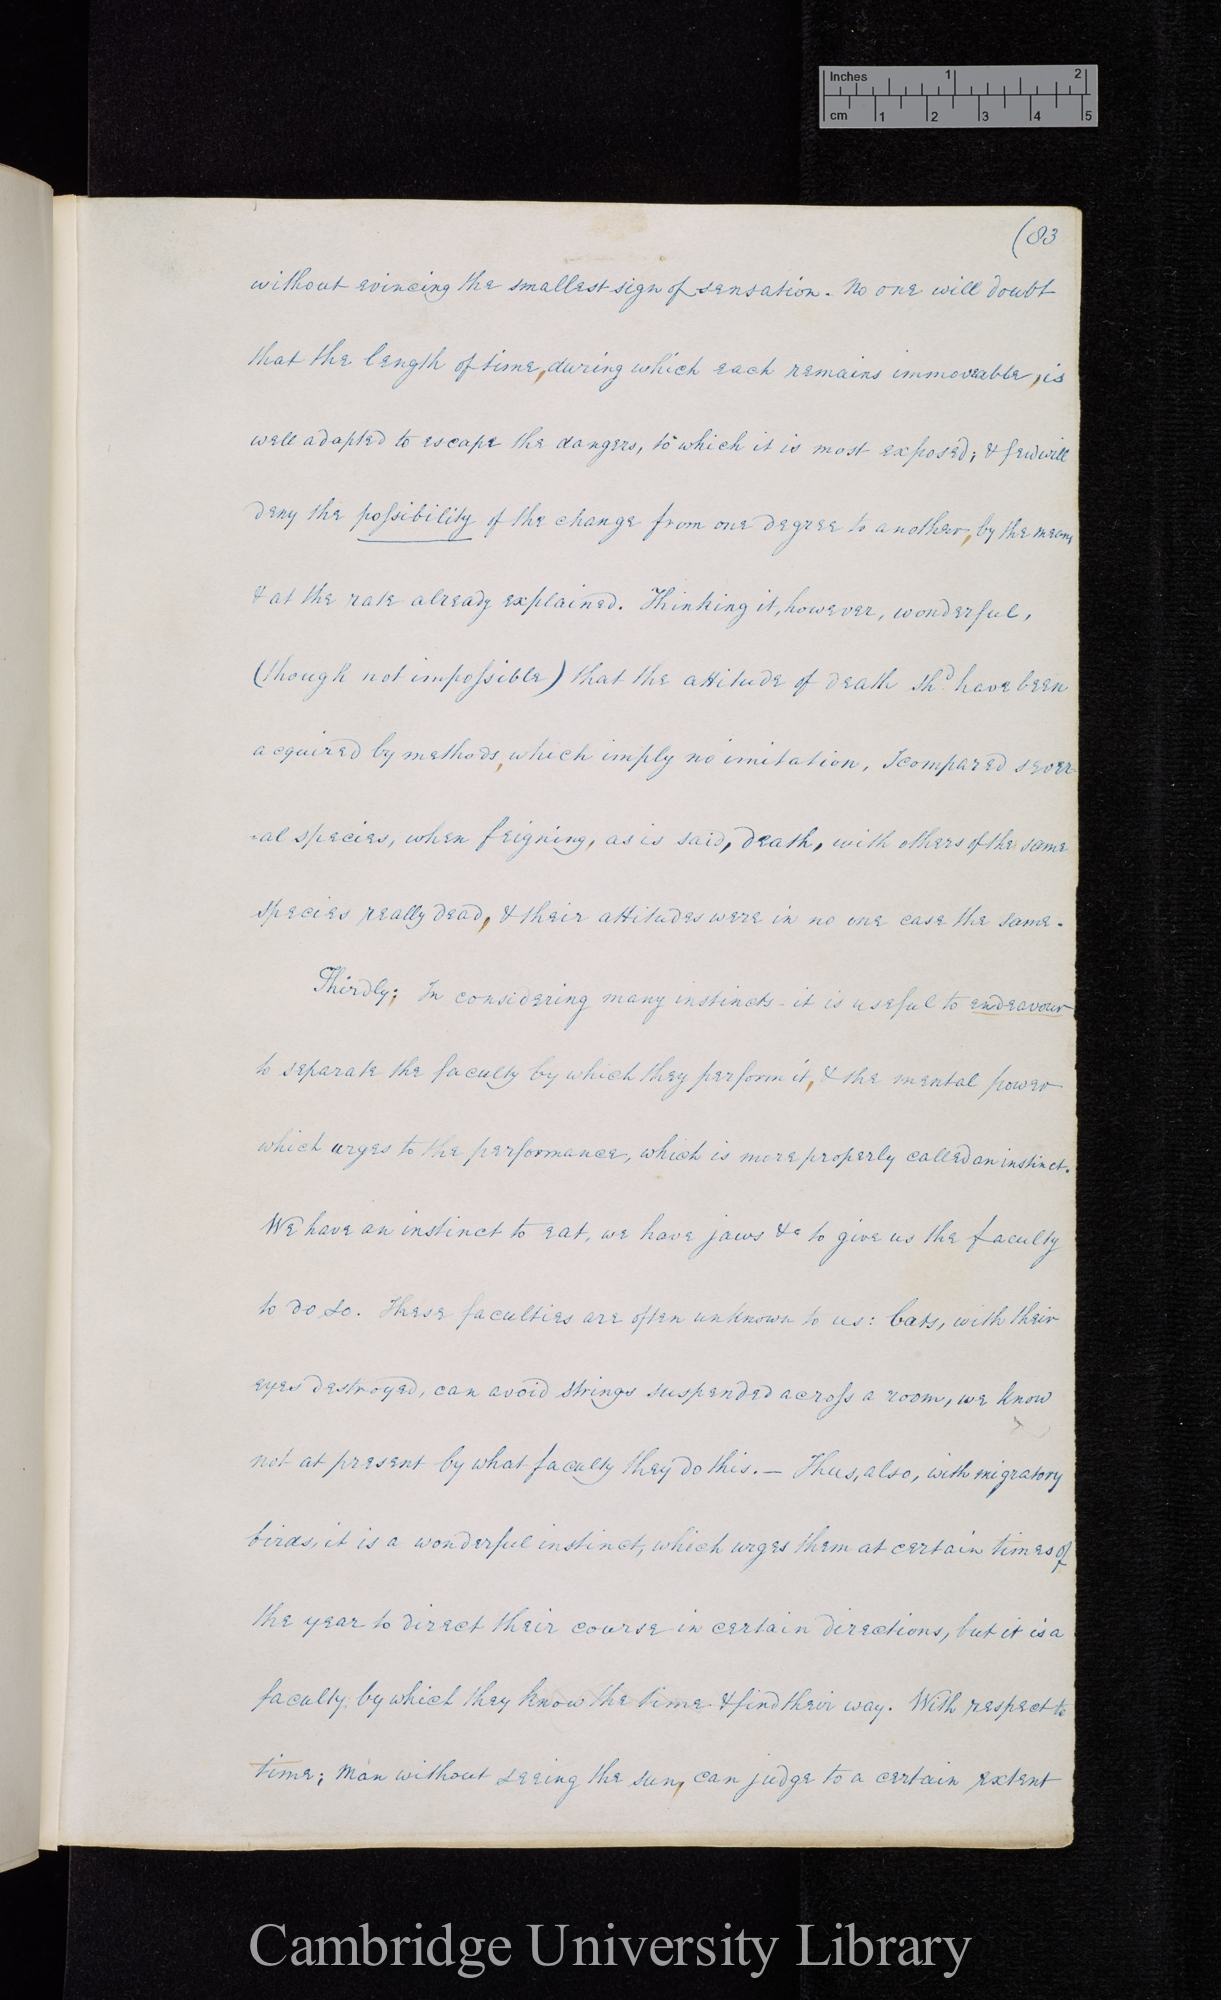 Inches 1 2
cm 1 2 3 4 5
(83
without evincing the smallest sign of sensation. No one will doubt
that the length of time, during which each remains immoveable, is
well adapted to escape the dangers, to which it is most exposed; & few will
deny the possibility of the change from one degree to another, by the means
& at the rate already explained. Thinking it, however, wonderful,
(though not impossible) that the attitude of death shd. have been
acquired by methods, which imply no imitation, I compared sever-
-al species, when feigning, as is said, death, with others of the same
species really dead, & their attitudes were in no one case the same.
Thirdly; In considering many instincts it is useful to endeavour
to separate the faculty by which they perform it, & the mental power
which urges to the performance, which is more properly called an instinct.
We have an instinct to eat, we have jaws &c to give us the faculty
to do so. These faculties are often unknown to us: bats, with their
eyes destroyed, can avoid strings suspended across a room, we know
not at present by what faculty they do this. — Thus, also, with migratory
birds, it is a wonderful instinct, which urges them at certain times of
the year to direct their course in certain directions, but it is a
faculty by which they know the time & find their way. With respect to
time; man without seeing the sun, can judge to a certain extent
Cambridge University Library